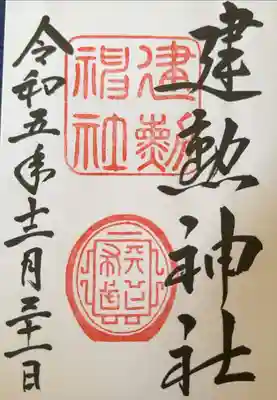 建勲神社
建勲
神社
令和五年十二月三十一日